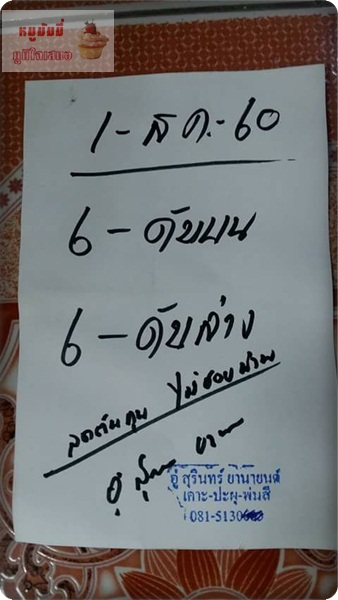 หมูมัมมี่
มูมีโอเสมอ
1-ส.ค.-60
6-ดับบน
6-ดับล่าง
ลดต้นทุน ไม่ชอบผ่าน
อู๋ สุรินทร์ ยานายนต์
เคาะ-ปะผุ-พ่นสี
081-5130